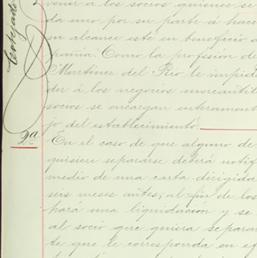 venir a los socios quienes se
da uno por su parte á hacer
un alcance este en beneficio d
pañia. Como la profesion de
Martinez del Rio le impide
der á los negocios mercantil
socios se encargan enteramente
jo del establecimiento.
2ª En el caso de que alguno de
quisiere separarse deberá notif
medio de una carta dirigida
seis meses antes, al fin de los
hará una liquidacion y se
al socio que quiera separar
te que le corresponda en ef